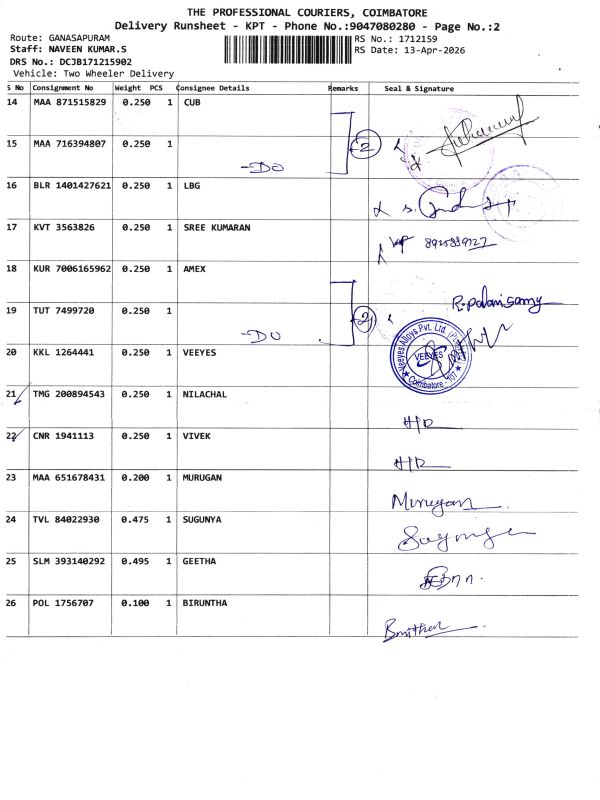 THE PROFESSIONAL COURIERS, COIMBATORE
Delivery Runsheet - KPT - Phone No.:9047080280 - Page No.:2
Route: GANASAPURAM
RS No.: 1712159
Staff: NAVEEN KUMAR.S
RS Date: 13-Apr-2026
DRS No.: DCJB171215902
Vehicle: Two Wheeler Delivery
S No Consignment No Weight PCS Consignee Details Remarks Seal & Signature
14 MAA 871515829 0.250 1 CUB
2
15 MAA 716394807 0.250 1
-DO
16 BLR 1401427621 0.250 1 LBG
17 KVT 3563826 0.250 1 SREE KUMARAN
18 KUR 7006165962 0.250 1 AMEX
R. palanisamy
19 TUT 7499720 0.250 1
-DO 2
20 KKL 1264441 0.250 1 VEEYES
Veeyes Alloys Pvt. Ltd.
VEEYES
Coimbatore - 107
21 TMG 200894543 0.250 1 NILACHAL
H/D
22 CNR 1941113 0.250 1 VIVEK
H/D
23 MAA 651678431 0.200 1 MURUGAN
Murugan
24 TVL 84022930 0.475 1 SUGUNYA
25 SLM 393140292 0.495 1 GEETHA
26 POL 1756707 0.100 1 BIRUNTHA